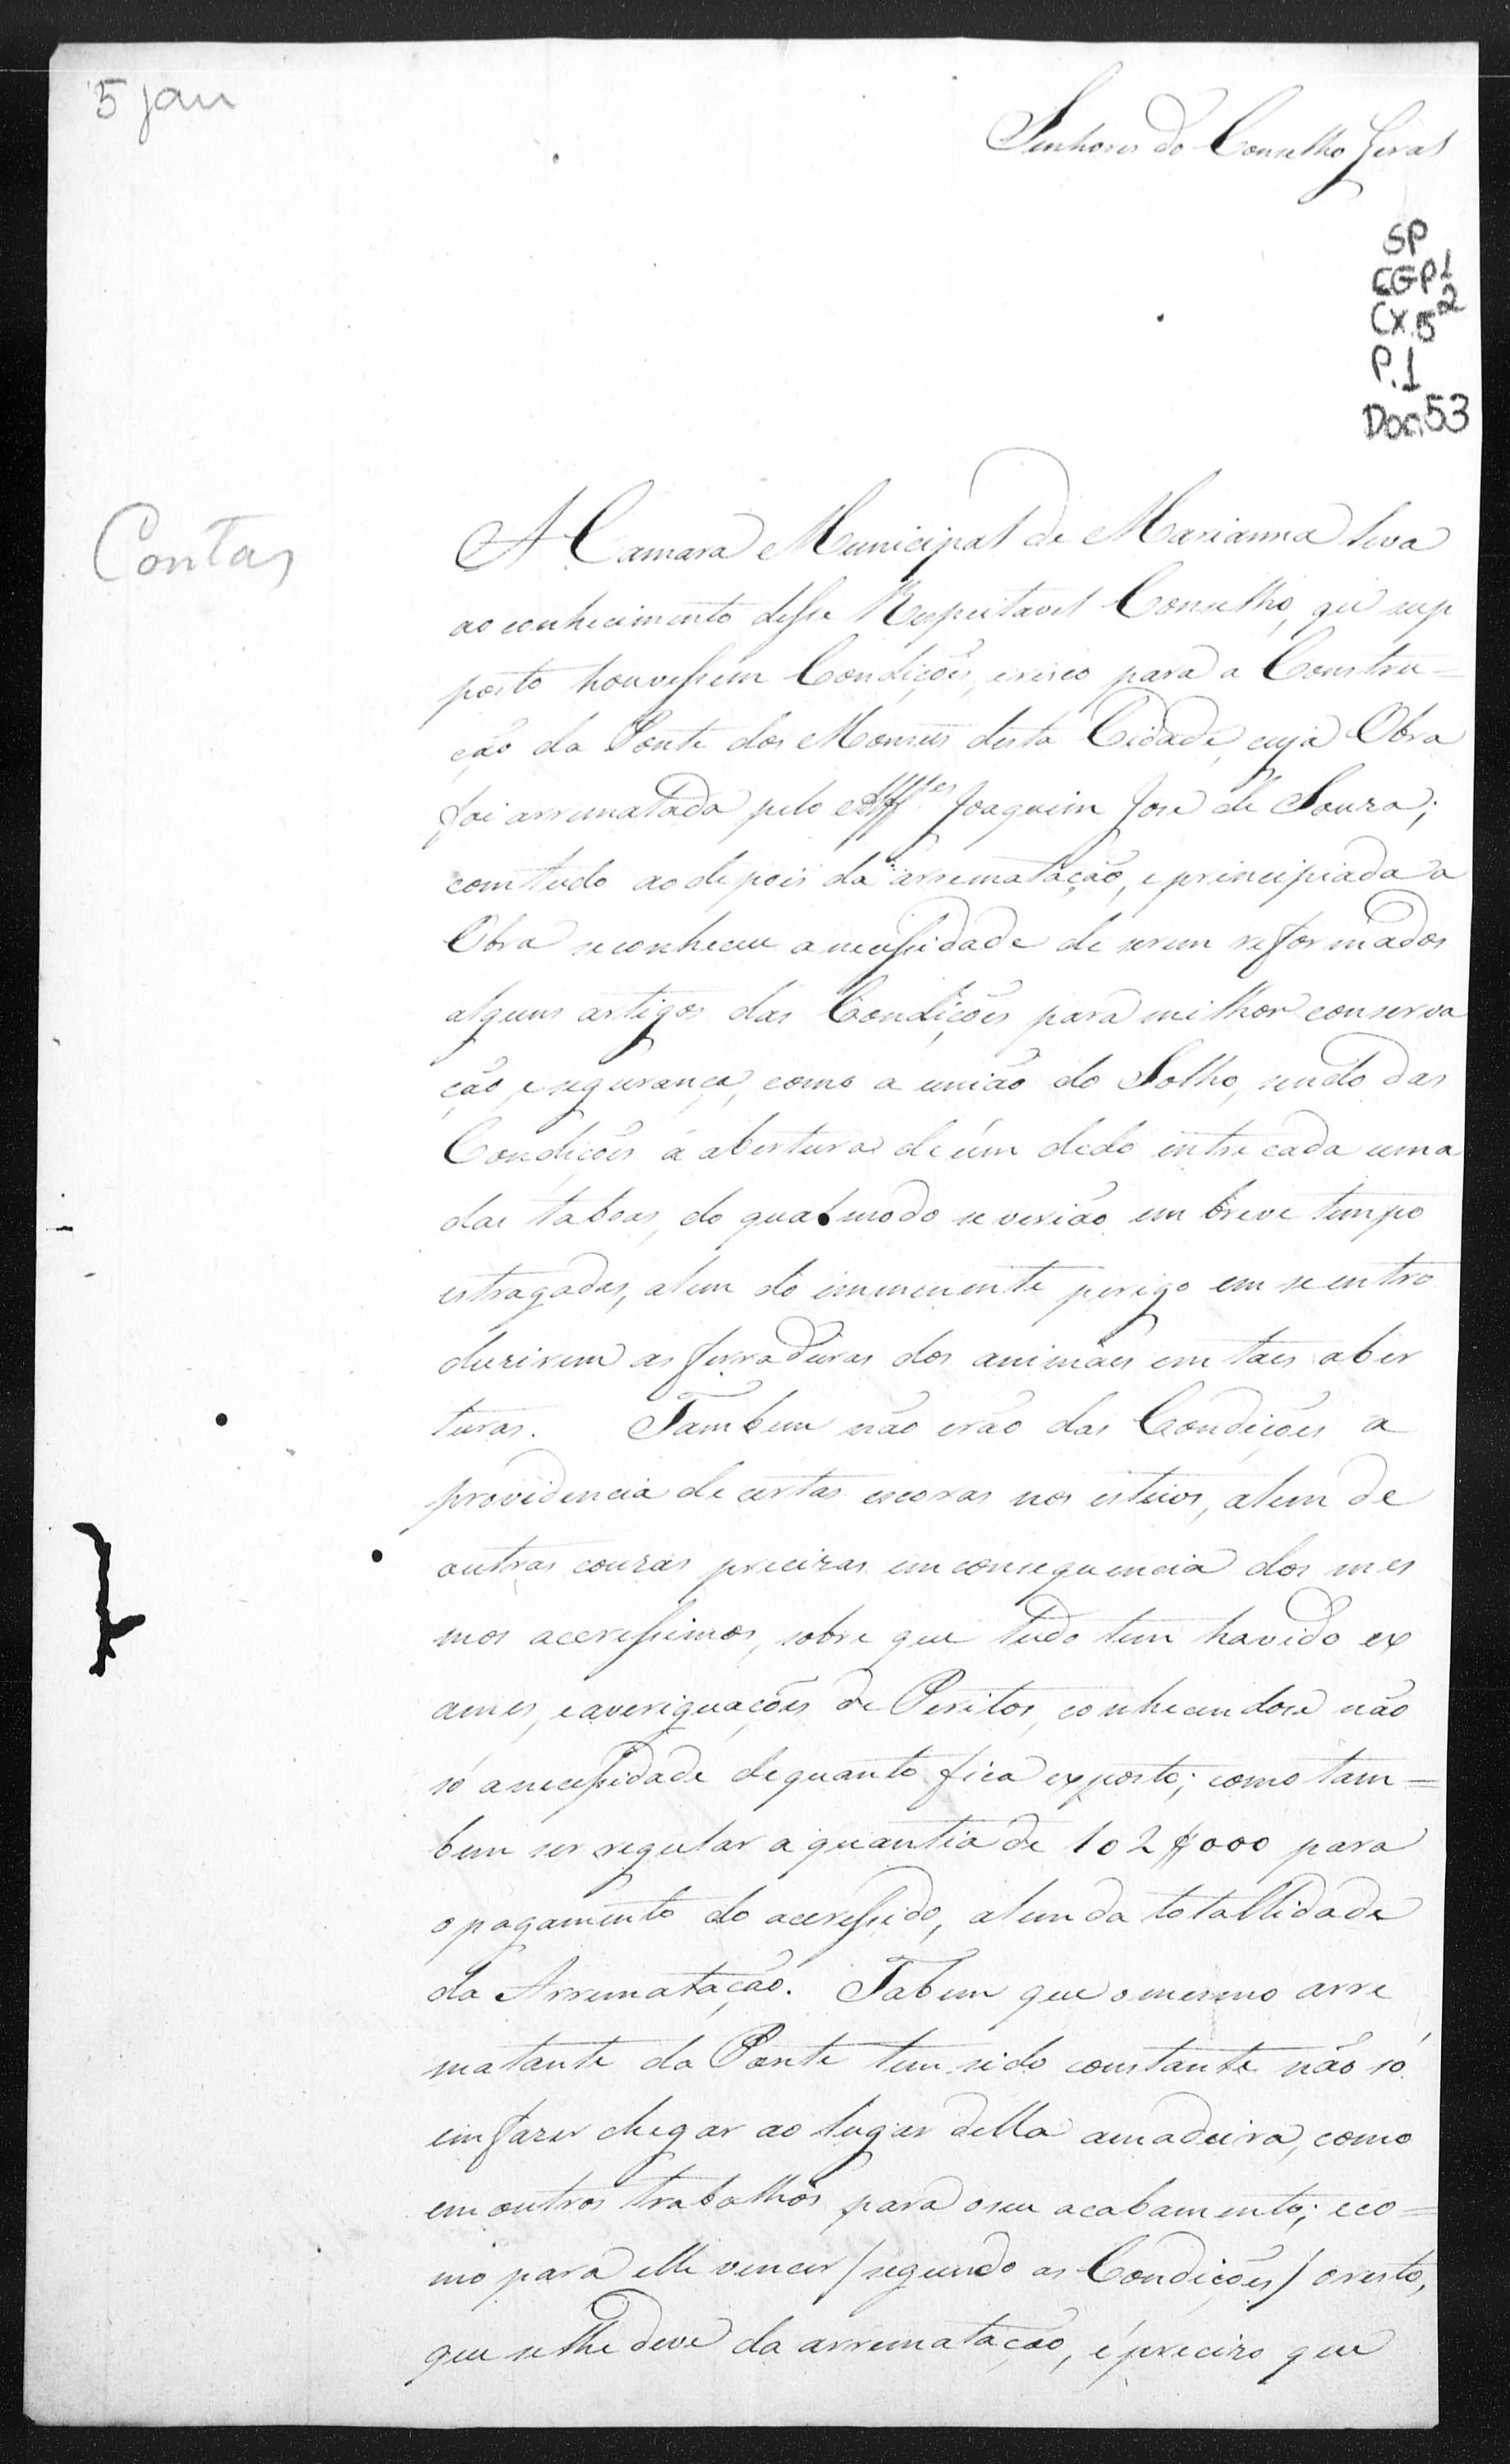 5 jan
Senhores do Conselho Geral
SP
CGP1
Cx.52
P.1
Doc.53
Contas
A Camara Municipal de Marianna leva
ao conhecimento desse Respeitavel Conselho, que sup
posto houvessem Condições, e risco para a Constru=
ção da Ponte dos Monsus desta Cidade, cuja Obra
foi arrematada pelo Alff.es Joaquim José de Souza;
comtudo ao depois da arrematação, e principiada a
Obra se conheceu a necessidade de serem reformados
alguns artigos das Condições para milhor conserva
ção, e segurança, como a união do Solho, sendo das
Condições a abertura de úm dedo entre cada uma
das taboas, do qual modo se verião em breve tempo
estragadas, alem do imminente perigo em se entro
duzirem as ferraduras dos animaes em taes aber
turas. Tambem não erão das Condições a
providencia de certas escoras nos esteios, alem de
outras couzas precizas em consequencia dos mes
mos acressimos, sobre que tudo tem havido ex
ames, e averiguações de Peritos, conhecendose não
só a necessidade de quanto fica exposto; como tam=
bem ser regular a quantia de 102$000 para
o pagamento do acressido, alem da totallidade
da Arrematação. Tabem que o mesmo arre
matante da Ponte tem sido constante não só
em fazer chegar ao lugar della a madeira, como
em outros trabalhos para o seu acabamento; e co=
mo para elle vencer / segundo as Condições / o resto,
que se lhe deve da arrematação, é precizo que